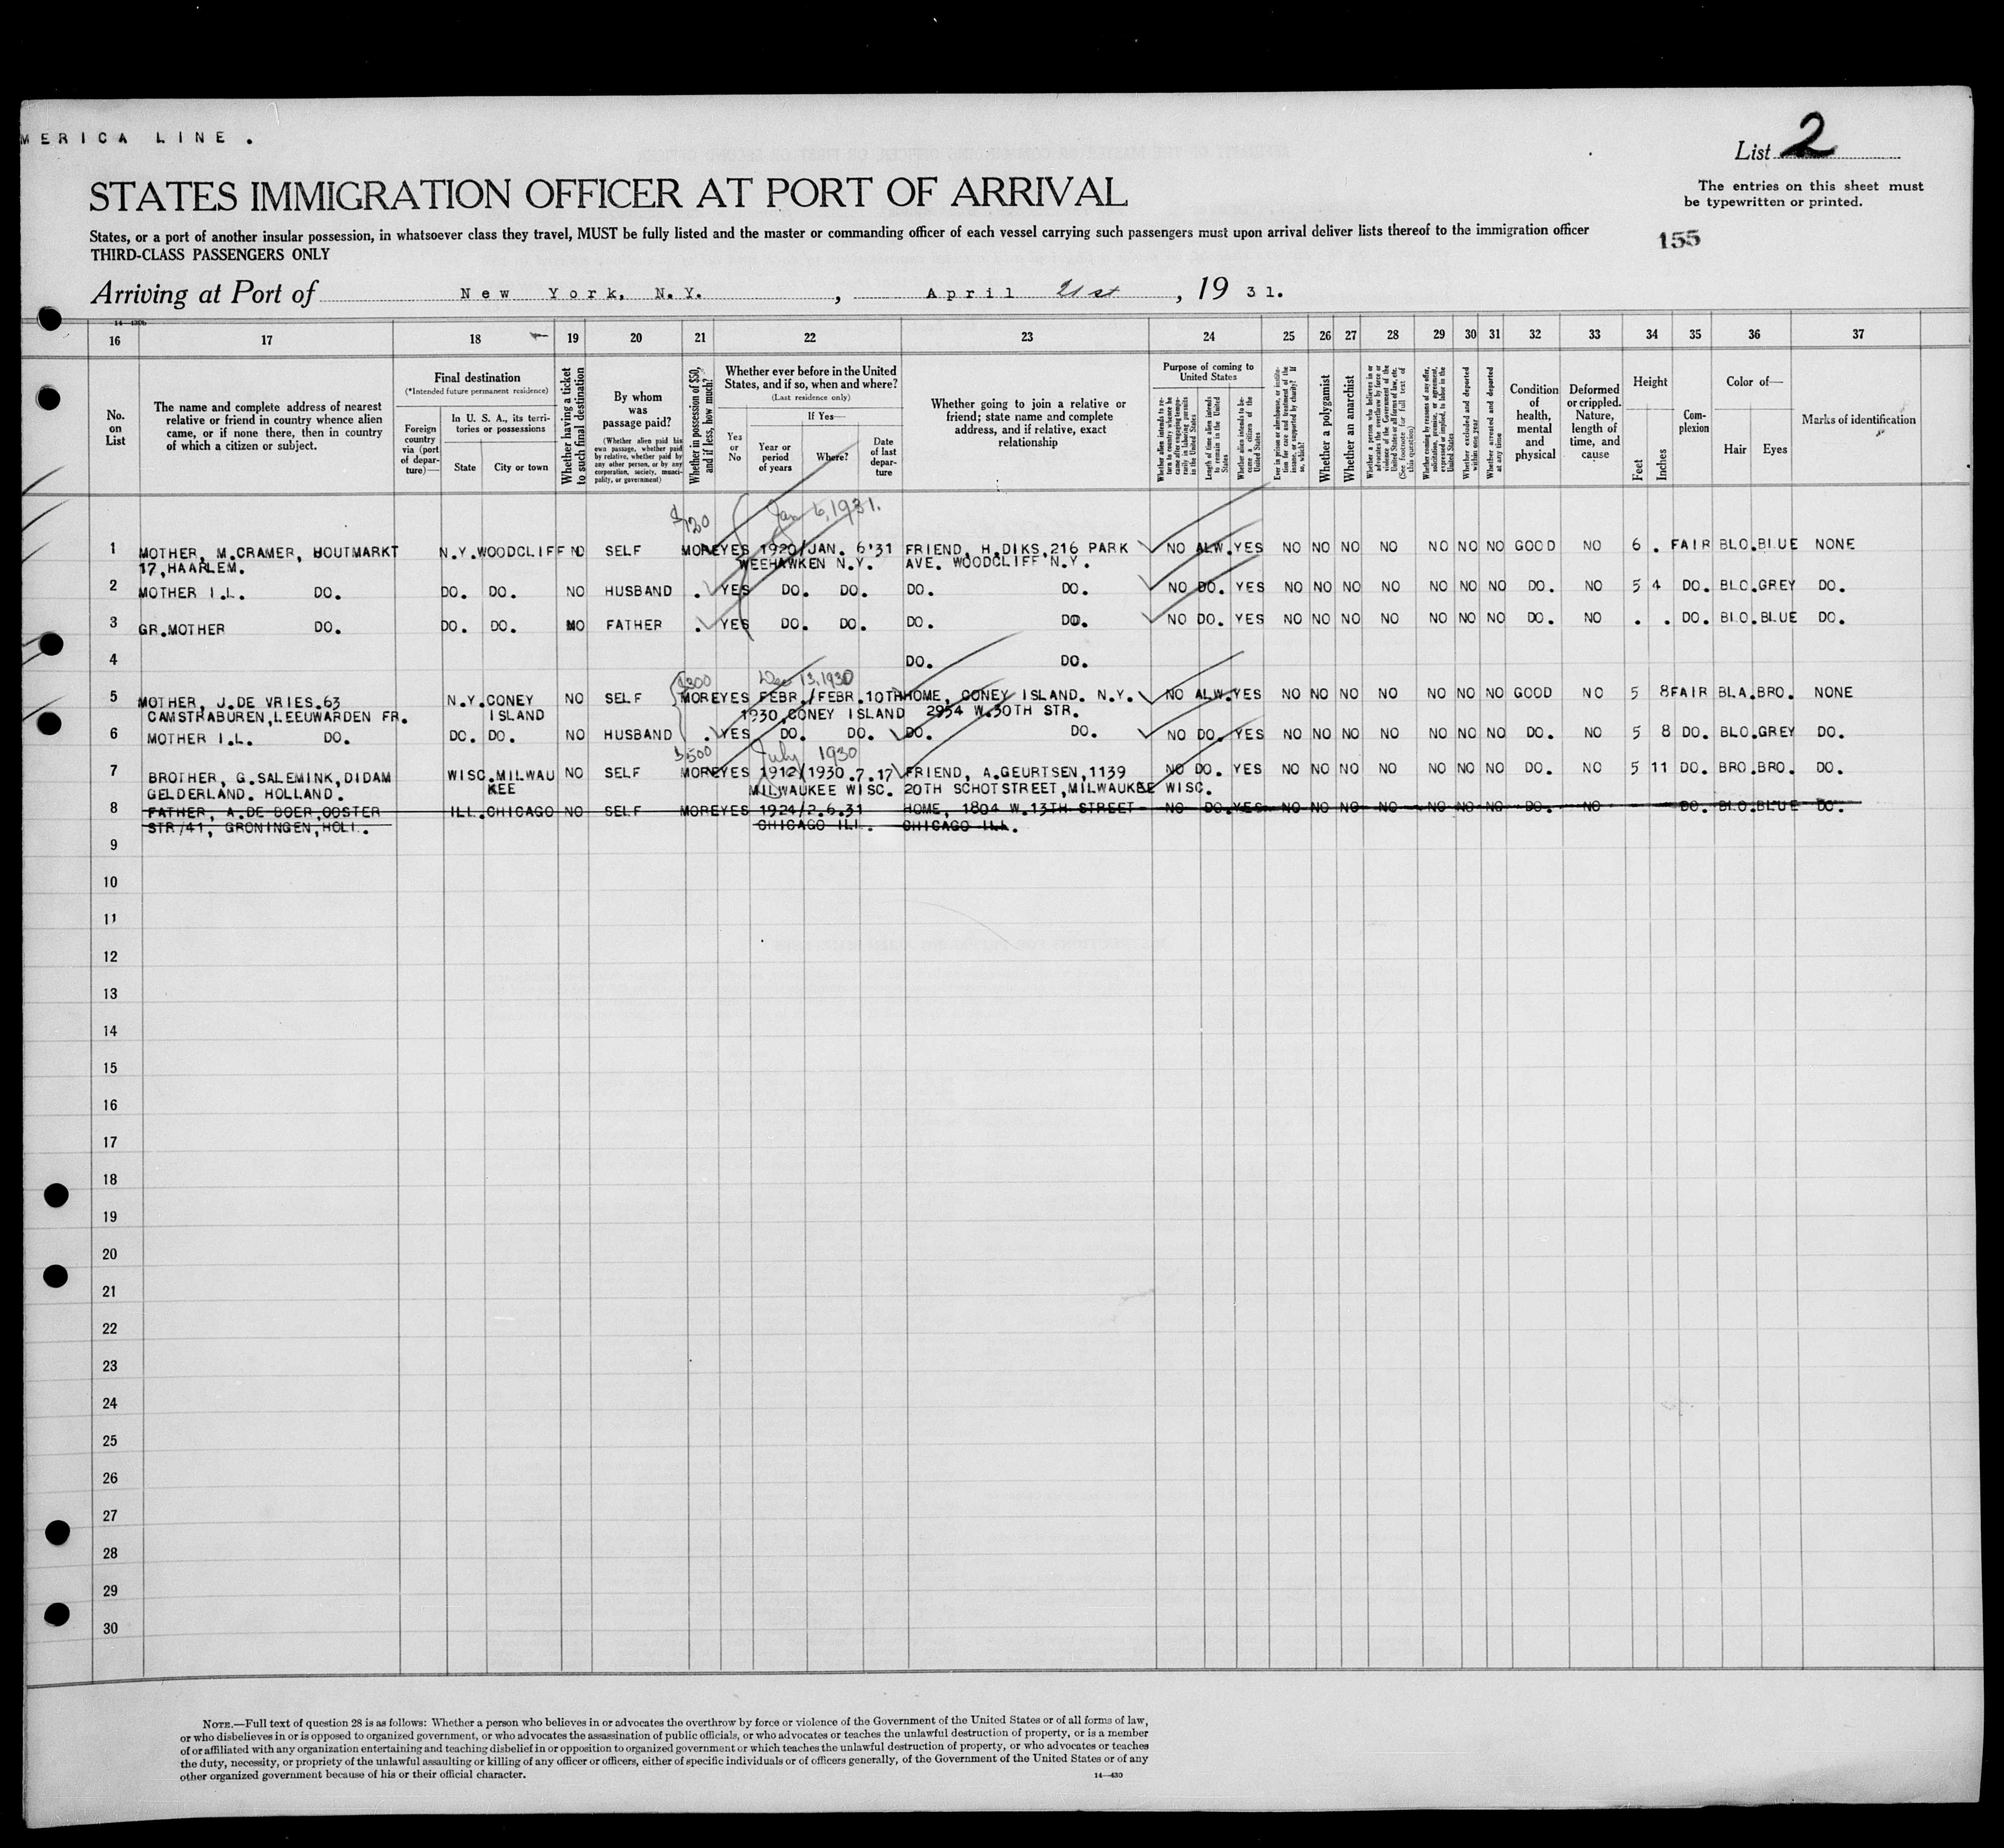 MERICA LINE.
List 2
STATES IMMIGRATION OFFICER AT PORT OF ARRIVAL
The entries on this sheet must
be typewritten or printed.
States, or a port of another insular possession, in whatsoever class they travel, MUST be fully listed and the master or commanding officer of each vessel carrying such passengers must upon arrival deliver lists thereof to the immigration officer
THIRD-CLASS PASSENGERS ONLY
155
Arriving at Port of New York, N.Y. , April 21st , 19 31.
16 17 18 19 20 21 22 23 24 25 26 27 28 29 30 31 32 33 34 35 36 37
No.
on
List
The name and complete address of nearest
relative or friend in country whence alien
came, or if none there, then in country
of which a citizen or subject.
Final destination
(*Intended future permanent residence)
Foreign
country
via (port
of depar-
ture)—
In U. S. A., its terri-
tories or possessions
State City or town
Whether having a ticket
to such final destination
By whom
was
passage paid?
(Whether alien paid his
own passage, whether paid
by relative, whether paid by
any other person, or by any
corporation, society, munici-
pality, or government)
Whether in possession of $50,
and if less, how much?
Whether ever before in the United
States, and if so, when and where?
(Last residence only)
Yes
or
No
If Yes—
Year or
period
of years
Where?
Date
of last
depar-
ture
Whether going to join a relative or
friend; state name and complete
address, and if relative, exact
relationship
Purpose of coming to
United States
Whether alien intends to re-
turn to country whence he
came after engaging tempo-
rarily in laboring pursuits
in the United States
Length of time alien intends
to remain in the United
States
Whether alien intends to be-
come a citizen of the
United States
Ever in prison or almshouse, or institu-
tion for care and treatment of the
insane, or supported by charity? If
so, which?
Whether a polygamist
Whether an anarchist
Whether a person who believes in or
advocates the overthrow by force or
violence of the Government of the
United States or all forms of law, etc.
(See footnote for full text of
this question)
Whether coming by reasons of any offer,
solicitation, promise, or agreement,
expressed or implied, to labor in the
United States
Whether excluded and deported
within one year
Whether arrested and deported
at any time
Condition
of
health,
mental
and
physical
Deformed
or crippled.
Nature,
length of
time, and
cause
Height
Feet Inches
Com-
plexion
Color of—
Hair Eyes
Marks of identification
$120 Jan 6, 1931.
1 MOTHER, M.CRAMER, HOUTMARKT N.Y. WOODCLIFF NO SELF MORE YES 1920/JAN. 6'31 FRIEND, H.DIKS,216 PARK NO ALW. YES NO NO NO NO NO NO NO GOOD NO 6 . FAIR BLO. BLUE NONE
17,HAARLEM. WEEHAWKEN N.Y. AVE. WOODCLIFF N.Y.
2 MOTHER I.L. DO. DO. DO. NO HUSBAND . YES DO. DO. DO. DO. NO DO. YES NO NO NO NO NO NO NO DO. NO 5 4 DO. BLO. GREY DO.
3 GR.MOTHER DO. DO. DO. NO FATHER . YES DO. DO. DO. DO. NO DO. YES NO NO NO NO NO NO NO DO. NO . . DO. BLO. BLUE DO.
4 DO. DO.
$300 Dec 13, 1930
5 MOTHER, J.DE VRIES.63 N.Y. CONEY NO SELF MORE YES FEBR./FEBR.10TH HOME, CONEY ISLAND. N.Y. NO ALW. YES NO NO NO NO NO NO NO GOOD NO 5 8 FAIR BLA. BRO. NONE
CAMSTRABUREN,LEEUWARDEN FR. ISLAND 1930,CONEY ISLAND 2954 W.30TH STR.
6 MOTHER I.L. DO. DO. DO. NO HUSBAND . YES DO. DO. DO. DO. NO DO. YES NO NO NO NO NO NO NO DO. NO 5 8 DO. BLO. GREY DO.
$500 July 1930
7 BROTHER, G.SALEMINK,DIDAM WISC. MILWAU NO SELF MORE YES 1912/1930.7.17 FRIEND, A.GEURTSEN,1139 NO DO. YES NO NO NO NO NO NO NO DO. NO 5 11 DO. BRO. BRO. DO.
GELDERLAND. HOLLAND. KEE MILWAUKEE WISC. 20TH SCHOTSTREET,MILWAUKEE WISC.
8 FATHER, A.DE BOER,OOSTER ILL. CHICAGO NO SELF MORE YES 1924/2.6.31 HOME, 1804 W.13TH STREET NO DO. YES NO NO NO NO NO NO NO DO. NO DO. BLO. BLUE DO.
STR/41, GRONINGEN,HOLL. CHICAGO ILL. CHICAGO ILL.
9
10
11
12
13
14
15
16
17
18
19
20
21
22
23
24
25
26
27
28
29
30
NOTE.—Full text of question 28 is as follows: Whether a person who believes in or advocates the overthrow by force or violence of the Government of the United States or of all forms of law,
or who disbelieves in or is opposed to organized government, or who advocates the assassination of public officials, or who advocates or teaches the unlawful destruction of property, or is a member
of or affiliated with any organization entertaining and teaching disbelief in or opposition to organized government or which teaches the unlawful destruction of property, or who advocates or teaches
the duty, necessity, or propriety of the unlawful assaulting or killing of any officer or officers, either of specific individuals or of officers generally, of the Government of the United States or of any
other organized government because of his or their official character.
14—430